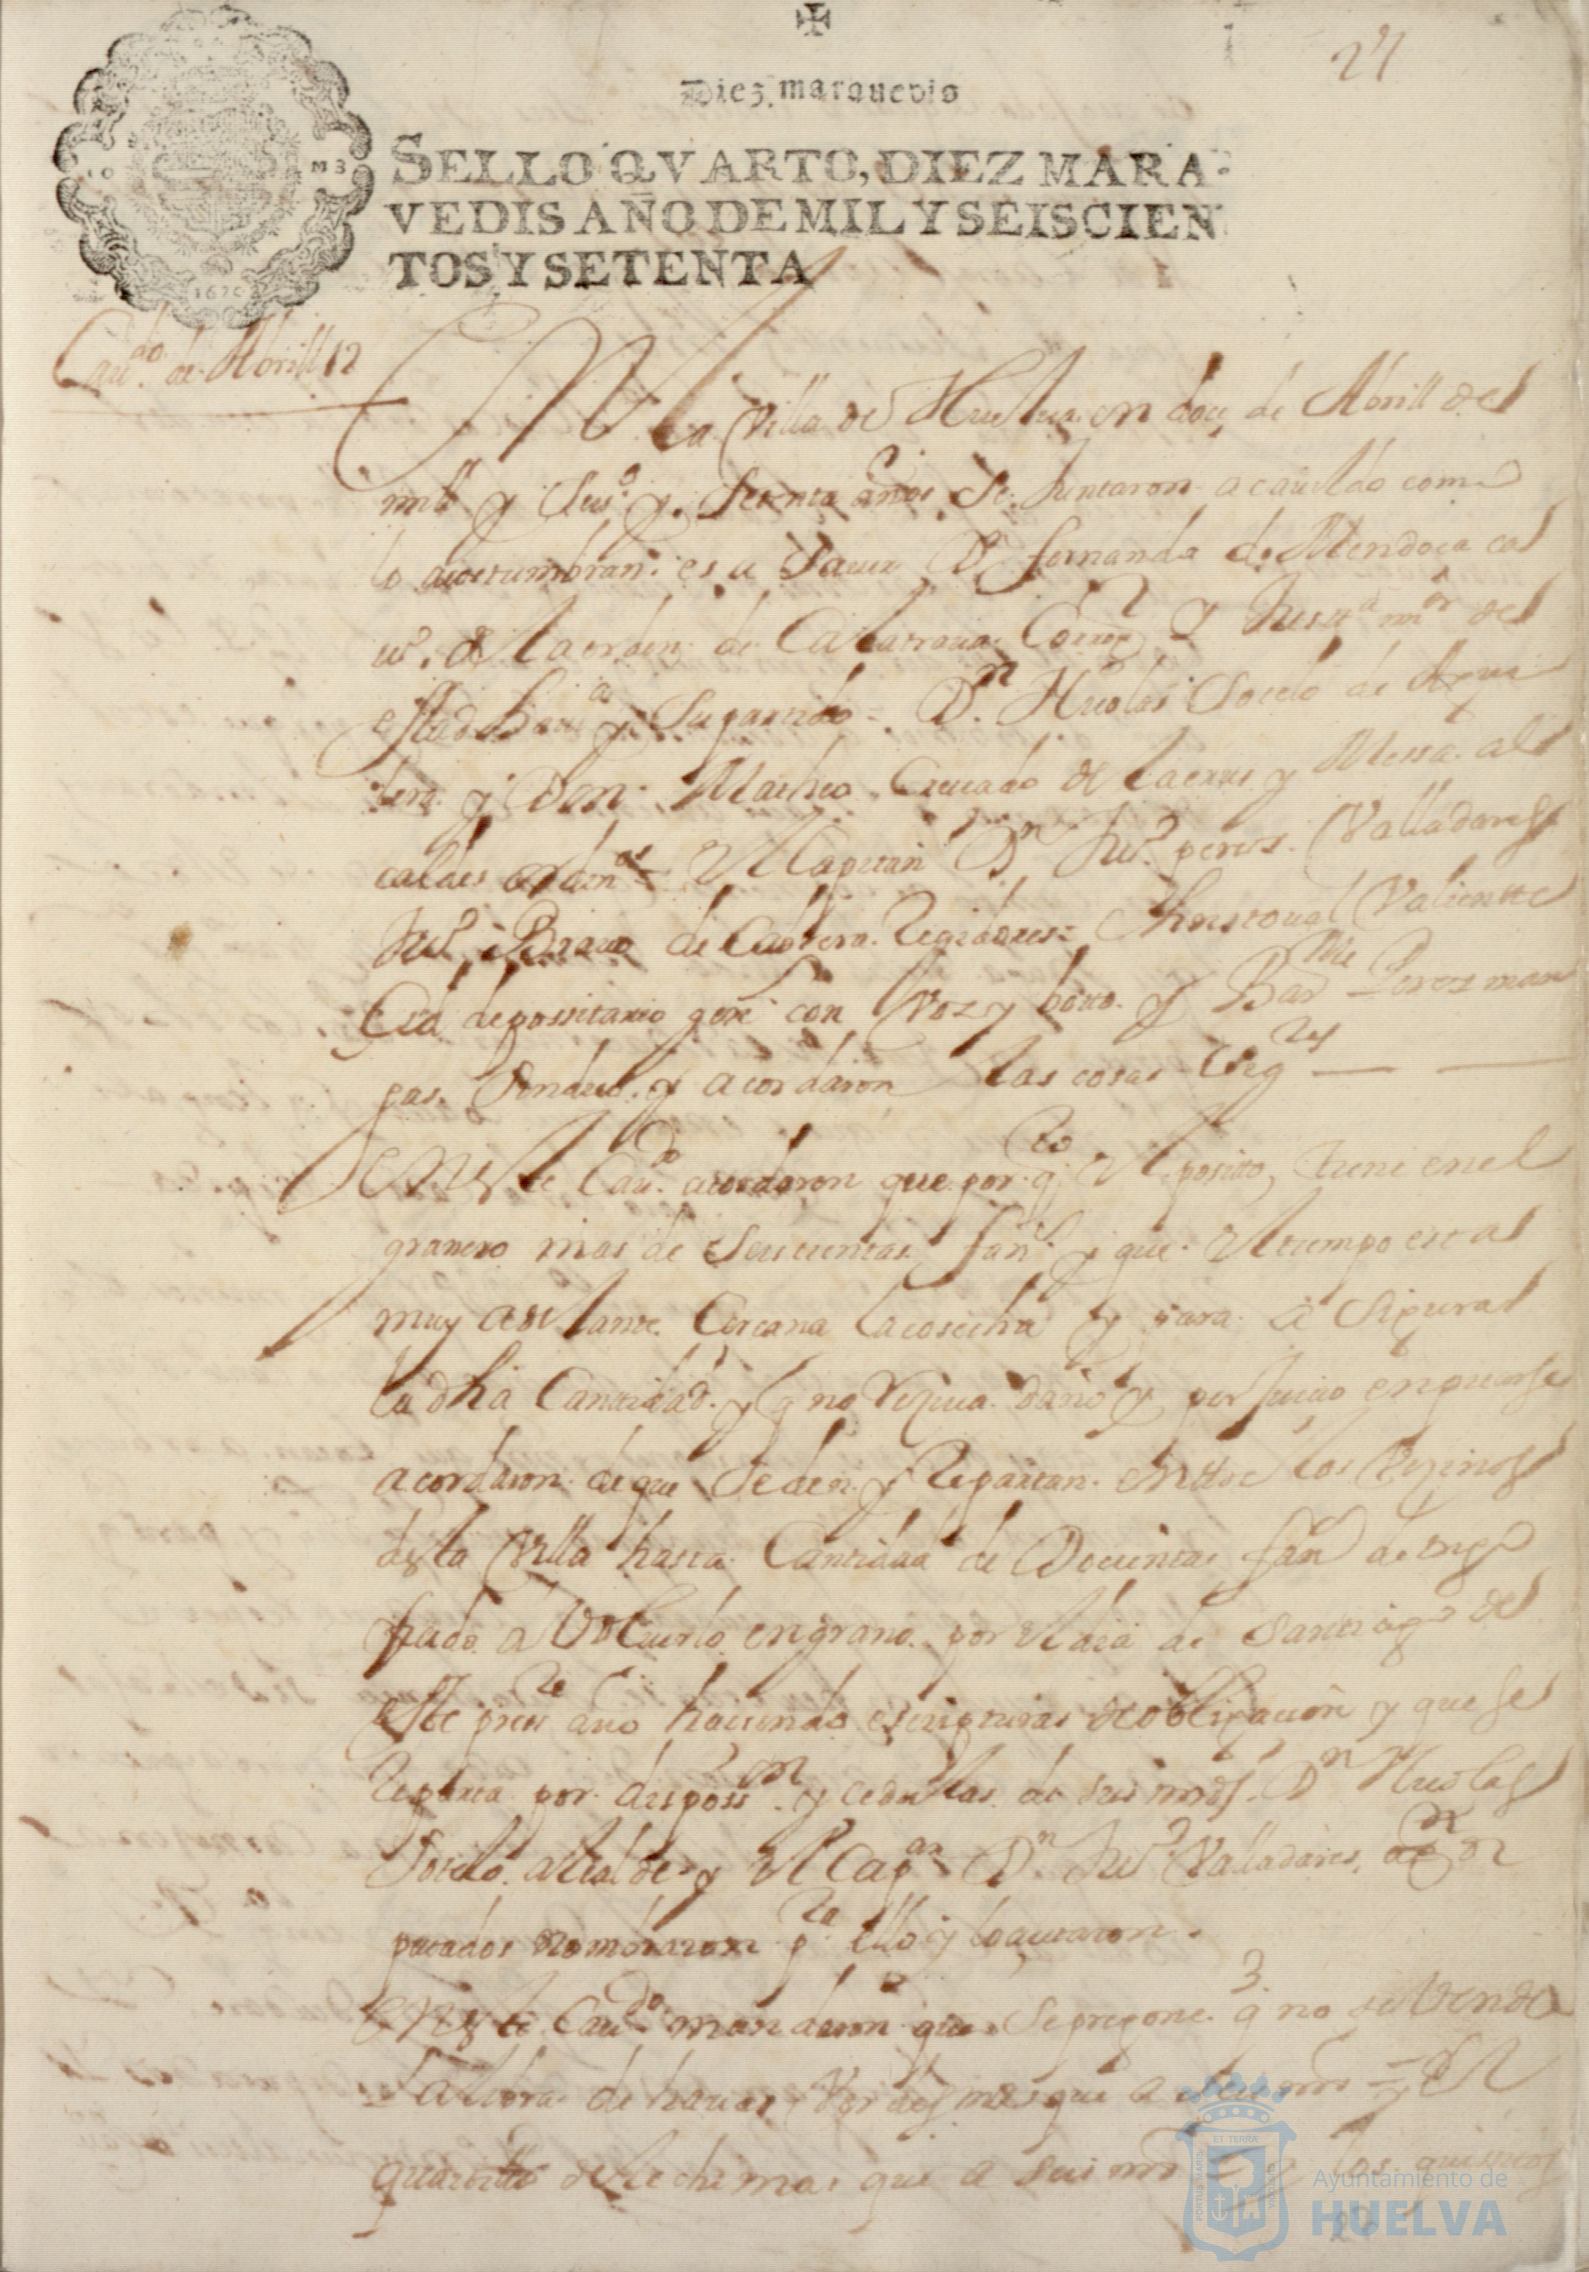 27
Diez marauedis
SELLO QVARTO, DIEZ MARA-
VEDIS AÑO DE MIL Y SEISCIEN
TOS Y SETENTA
1670
Caudo. de Abrill 12
En la Villa de Huelua en doce de Abrill de
mill y Seiso. y Setenta años Se Juntaron a cauildo como
lo acostumbran es a Sauer Dn fernando de Mendoça ca
uo. de la orden de Calatraua Corregr Y Justa mor de
esta dha va y Su partido = Dn Nicolas Sotelo de Agui
lera y Don Matheo Cruçado de la crus y Messa al
caldes ordinos = El Capitan Dn Juo. peres Valladares
Juo. Brauo de Cabrera Regidores = Christoual Valiente
Cid depossitario gene con Voz y boto y Barme Perez man
gas Sindico y acordaron las cosas Sigtes
En este Caudo acordaron que por qto El posito, tiene en el
granero mas de Seiscientas fans. y que El tiempo esta
muy adelante Cercana la cosecha y para a Sigurar
la dha Cantidad y q no Reçiua daño y perjuicio en picarse
acordaron de que Se den y Repartan entre los Veçinos
desta Villa hasta Cantidad de Docientas fans de trigo
fiado a Voluerlo en grano por el dia de Santiago de
este prete año haciendo escripturas de obligaçion y que se
Reparta por dispossn y cedulas de sus mds. Dn Nicolas
Sotelo alcalde y El Capan Dn Juo. Valladares
putados nombraron pra ello y lo autaron
En este Caudo mandaron que Se pregone q no se Venda
la libra de hauas Verdes mas que a seis mrs = y El
quartillo de leche mas que a seis mrs y los quesitos
PORTUS MARIS ET TERRÆ CUSTODIA
Ayuntamiento de
HUELVA